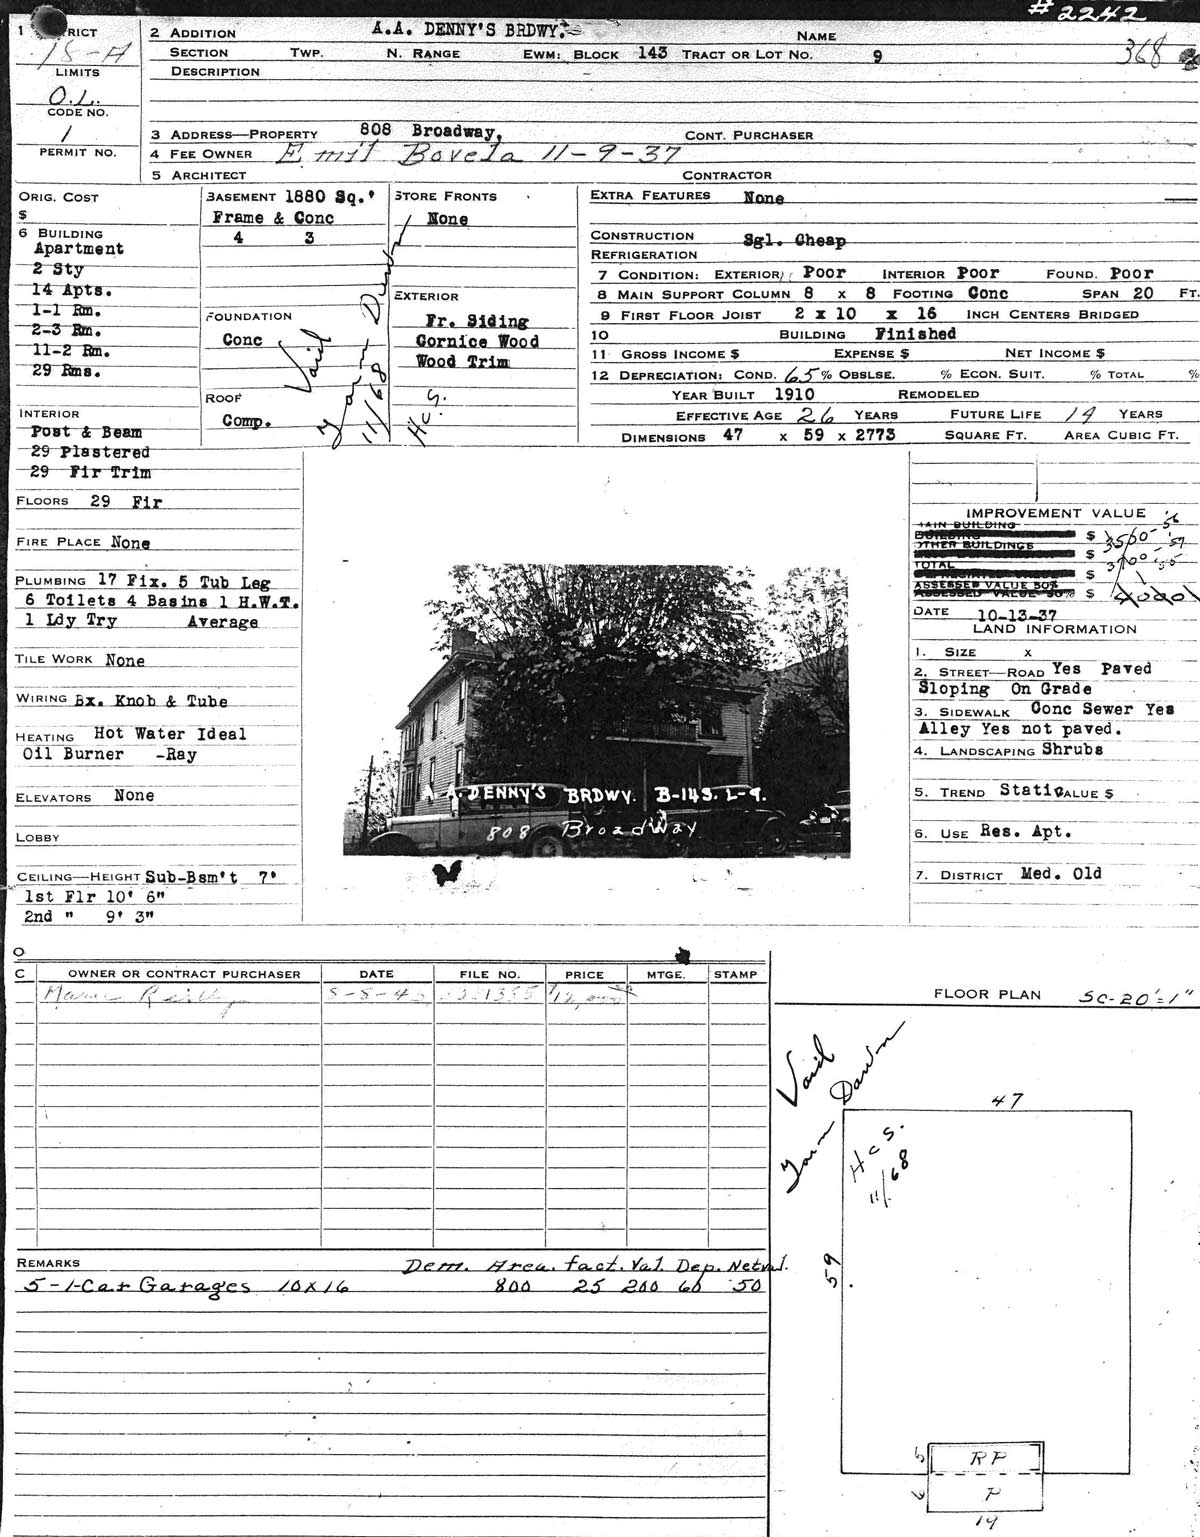 #2242
1 RICT 2 ADDITION A.A. DENNY'S BRDWY. NAME
18-A SECTION TWP. N. RANGE EWM: BLOCK 143 TRACT OR LOT NO. 9 368
LIMITS DESCRIPTION
O.L.
CODE NO.
1 3 ADDRESS—PROPERTY 808 Broadway, CONT. PURCHASER
PERMIT NO. 4 FEE OWNER Emil Bovela 11-9-37
5 ARCHITECT CONTRACTOR
ORIG. COST
$
6 BUILDING
Apartment
2 Sty
14 Apts.
1-1 Rm.
2-3 Rm.
11-2 Rm.
29 Rms.
INTERIOR
Post & Beam
29 Plastered
29 Fir Trim
FLOORS 29 Fir
FIRE PLACE None
PLUMBING 17 Fix. 5 Tub Leg
6 Toilets 4 Basins 1 H.W.T.
1 Ldy Try Average
TILE WORK None
WIRING Bx. Knob & Tube
HEATING Hot Water Ideal
Oil Burner -Ray
ELEVATORS None
LOBBY
CEILING—HEIGHT Sub-Bsm't 7'
1st Flr 10' 6"
2nd " 9' 3"
BASEMENT 1880 Sq.'
Frame & Conc
4 3
FOUNDATION
Conc
ROOF
Comp.
Void
Torn Down
11/68
HcS.
STORE FRONTS
None
EXTERIOR
Fr. Siding
Cornice Wood
Wood Trim
EXTRA FEATURES None
CONSTRUCTION Sgl. Cheap
REFRIGERATION
7 CONDITION: EXTERIOR Poor INTERIOR Poor FOUND. Poor
8 MAIN SUPPORT COLUMN 8 x 8 FOOTING Conc SPAN 20 FT.
9 FIRST FLOOR JOIST 2 x 10 x 16 INCH CENTERS BRIDGED
10 BUILDING Finished
11 GROSS INCOME $ EXPENSE $ NET INCOME $
12 DEPRECIATION: COND. 65% OBSLSE. % ECON. SUIT. % TOTAL %
YEAR BUILT 1910 REMODELED
EFFECTIVE AGE 26 YEARS FUTURE LIFE 14 YEARS
DIMENSIONS 47 x 59 x 2773 SQUARE FT. AREA CUBIC FT.
A.A. DENNY'S BRDWY. B-143. L-9.
808 Broadway
IMPROVEMENT VALUE
MAIN BUILDING $ 3500- '56
OTHER BUILDINGS $ '57
TOTAL $ 3700- '55
ASSESSED VALUE 50% $ 4000
DATE 10-13-37
LAND INFORMATION
1. SIZE x
2. STREET—ROAD Yes Paved
Sloping On Grade
3. SIDEWALK Conc Sewer Yes
Alley Yes not paved.
4. LANDSCAPING Shrubs
5. TREND Static VALUE $
6. USE Res. Apt.
7. DISTRICT Med. Old
O
C OWNER OR CONTRACT PURCHASER DATE FILE NO. PRICE MTGE. STAMP
REMARKS Dem. Area. fact. Val. Dep. Net val.
5-1-Car Garages 10x16 800 25 200 60 50
FLOOR PLAN SC-20'=1"
Void
Torn Down
HcS.
11/68
47
59
5 RP
6 P
19